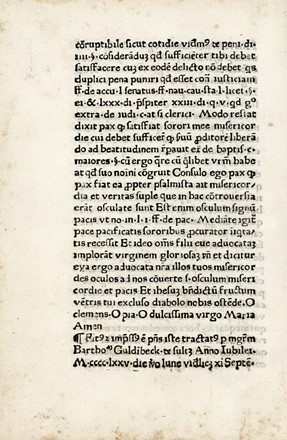 cõruptibile sicut cotidie videmꝰ ꝛc peni. di.
iiii. §. considerãdũ qđ sufficiẽter tibi debet
satisfacere cuz ex eodẽ delicto nõ debet qs
duplici pena puniri qđ esset cõtra iusticiam
ff. de accu. l. senatus. ff. nau. cau. sta. l. licet. §.
ei. & lxxx. di. pspiter xxiii. di. q. v. qđ go
extra. de iudi. c. at si clerici. Modo restat
dixit pax ꝙ satisfiat sorori mee misericor
die cui debet sufficeꝛ
ad beatitudinem
maiores. §. cũ ergo
at qđ suo noini cõgruit Consulo ego pax ꝙ
pax fiat ea ppter psalmista ait misericordia
et veritas
erãt osculate sunt Est enim osculum signũ
pacis vt no. in l. i. ff. de pac. Mediãte igit
pace pacificatis sororibus pcurator iiqta
tis recessit Et ideo oms filii eue aduocataz
implorãt virginem gloriosaz
tur eya ergo aduocata nr̃a illos tuos misericor
des oculos ad nos cõuerte §. osculum miseri
cordie et pacis Et ihesuz bñdictũ fructum
vẽtris tui excluso diabolo nobis ostẽde. O
clemens. O pia. O dulcissima virgo Maria
Amen
¶ Fitꝰ & impssꝰ ẽ pñs iste tractatꝰ p mgrm
Bartho. Guldibeck. te sultz. Anno Iubilei.
M. cccc. lxxv. die ꝟo lune videlicz xi Septẽ.